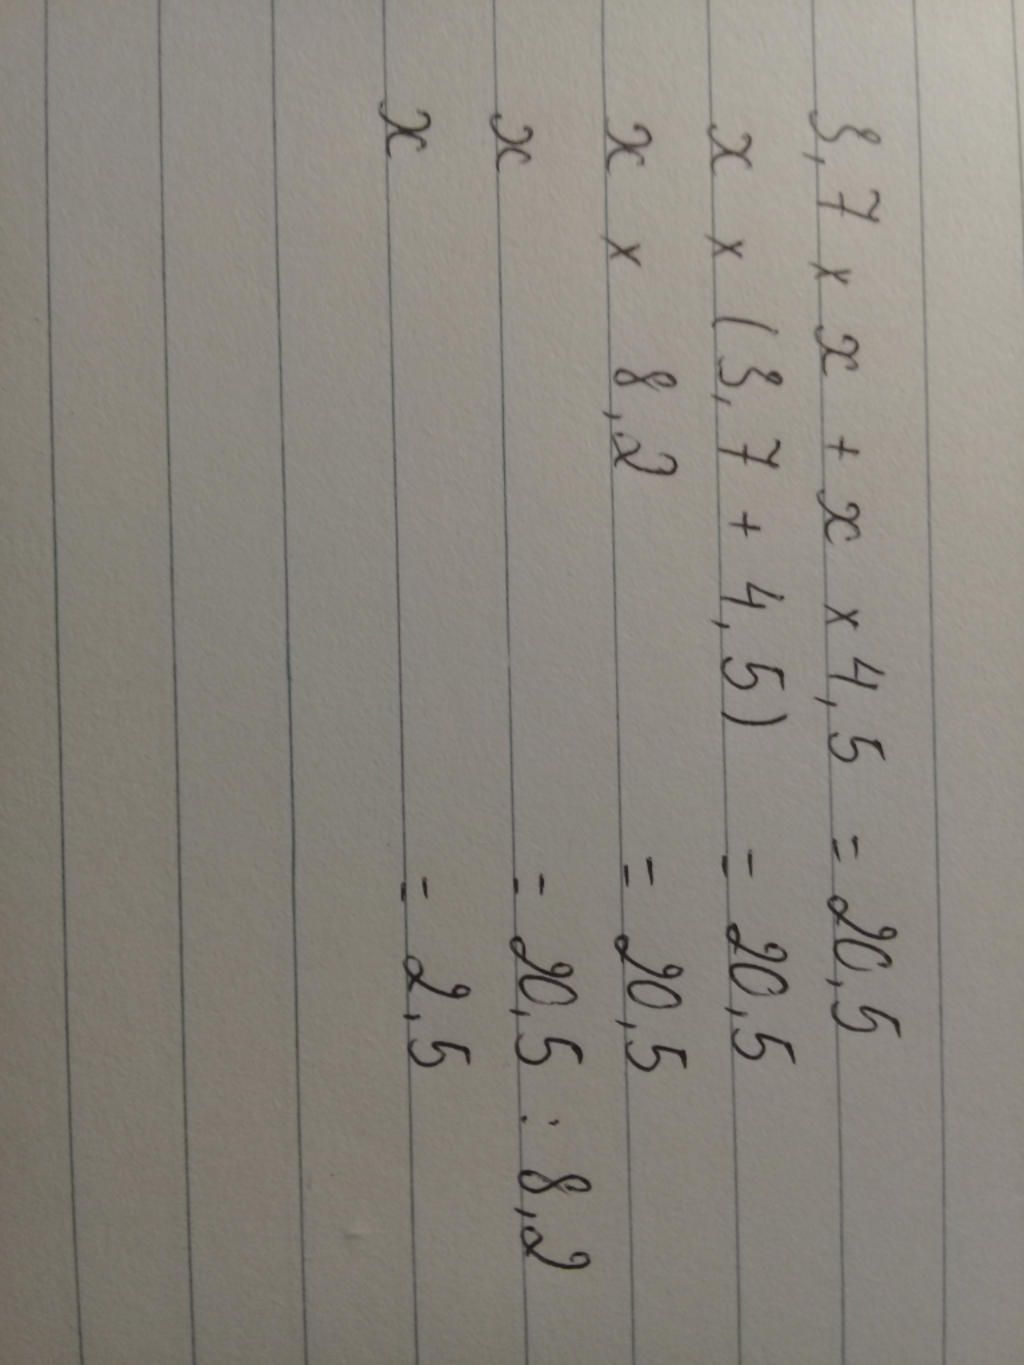 3,7 x x + x x 4,5 = 20,5
x x (3,7 + 4,5) = 20,5
x x 8,2 = 20,5
x = 20,5 : 8,2
x = 2,5